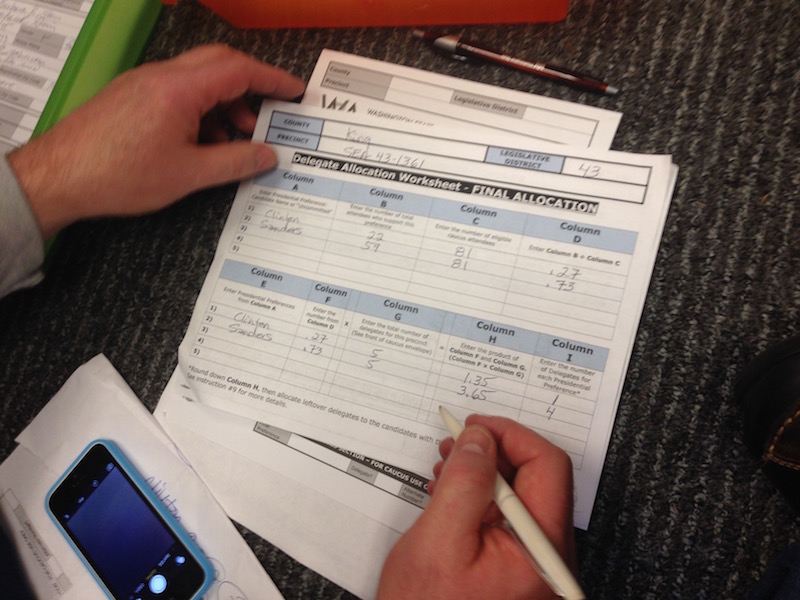 County
Precinct
Legislative District
WASHINGTON
COUNTY King
PRECINCT SEA 43-1361
LEGISLATIVE DISTRICT 43
Delegate Allocation Worksheet - FINAL ALLOCATION
Column A Column B Column C Column D
Enter Presidential Preference Enter the number of total attendees who support this preference Enter the number of eligible caucus attendees Enter Column B ÷ Column C
1) Clinton 22 81 .27
2) Sanders 59 81 .73
3)
4)
5)
Column E Column F x Column G = Column H Column I
Enter Presidential Preferences from Column A Enter the number from Column D Enter the total number of delegates for this precinct (See front of caucus envelope) Enter the product of Column F and Column G. (Column F x Column G) Enter the number of Delegates for each Presidential Preference*
1) Clinton .27 5 1.35 1
2) Sanders .73 5 3.65 4
3)
4)
5)
*Round down Column H, then allocate leftover delegates to the candidates with
See instruction #9 for more details.
Preference
SECTION - FOR CAUCUS USE
Delegate*
Alternate